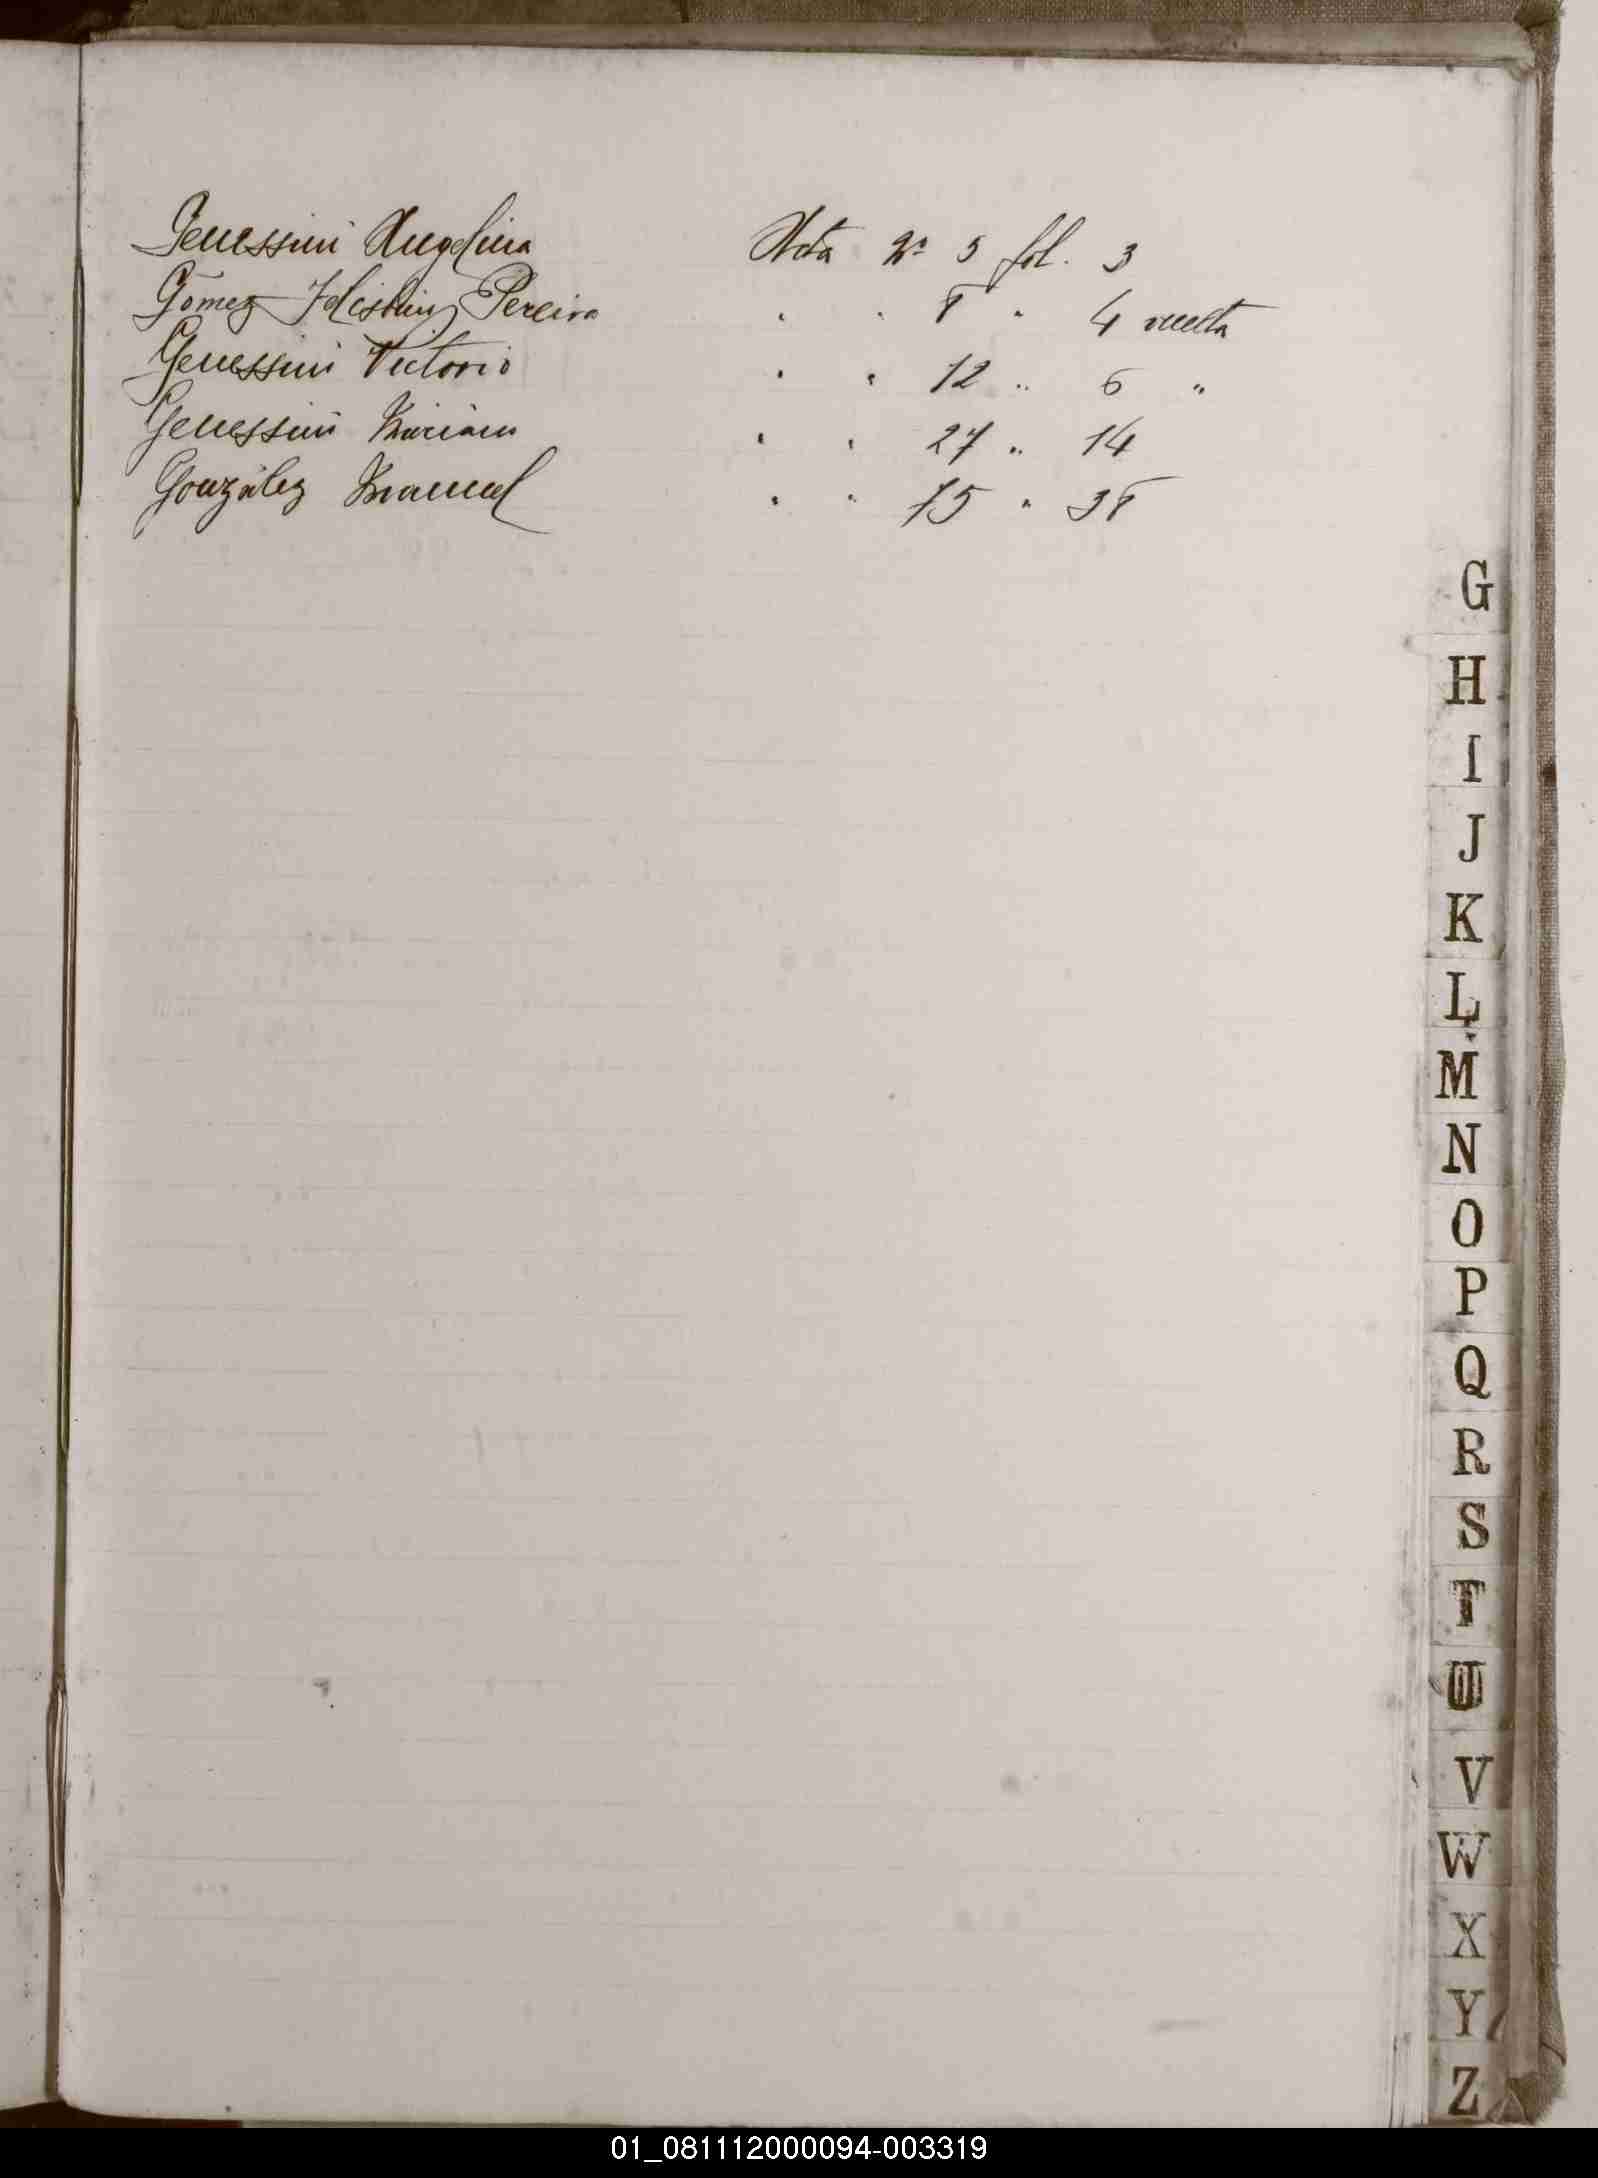 Genessini Angelina Acta Nº 5 fol. 3
Gómez Pereira " " 8 " 4 vuelta
Genessini Victorio " " 12 " 6 "
Genessini Miriam " " 27 " 14
González Manuel " " 75 " 38
G
H
I
J
K
L
M
N
O
P
Q
R
S
T
U
V
W
X
Y
Z
01_081112000094-003319